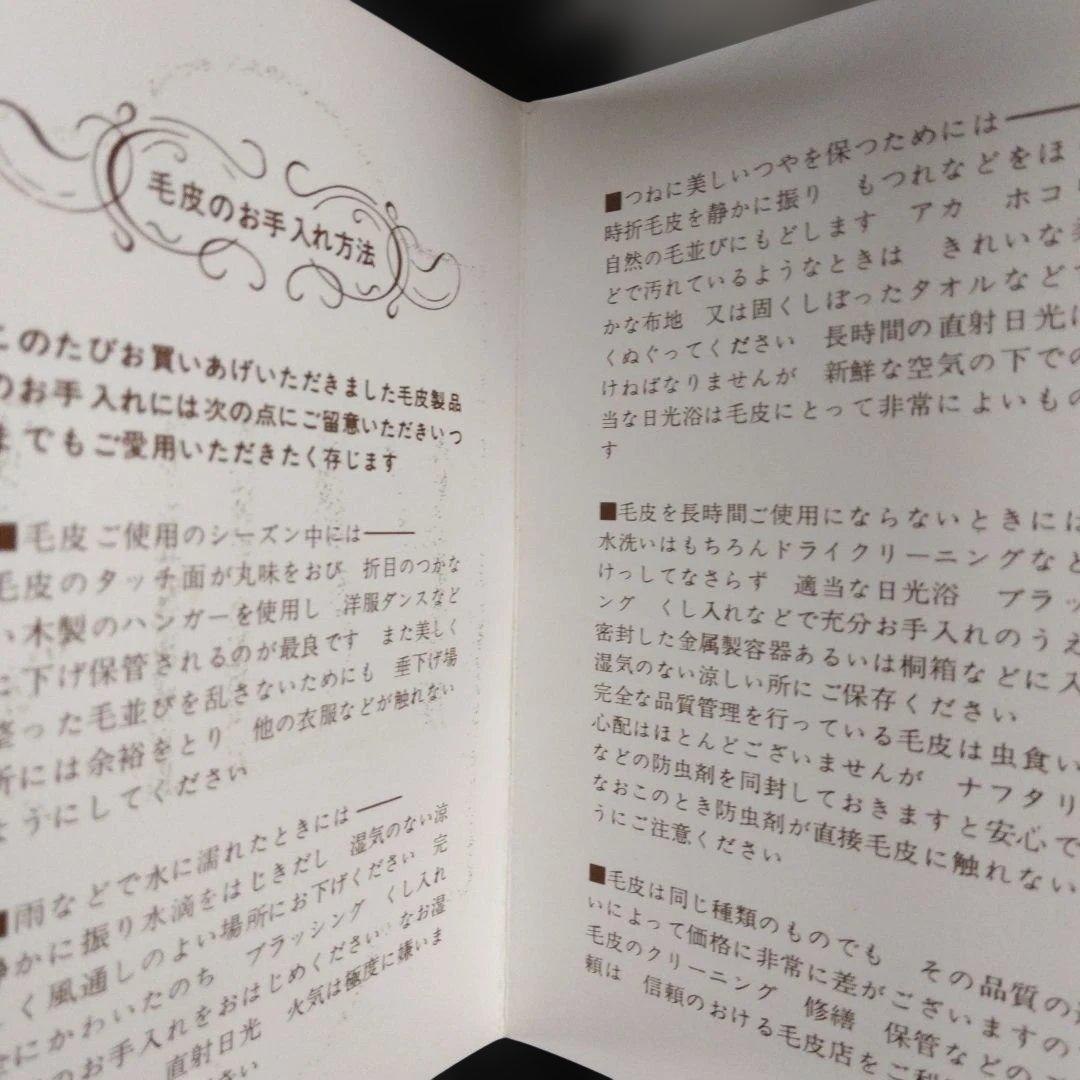 毛皮のお手入れ方法
このたびお買いあげいただきました毛皮製品
のお手入れには次の点にご留意いただきいつ
までもご愛用いただきたく存じます
■毛皮ご使用のシーズン中には――
毛皮のタッチ面が丸味をおび 折目のつかな
い木製のハンガーを使用し 洋服ダンスなど
に下げ保管されるのが最良です また美しく
整った毛並びを乱さないためにも 垂下げ場
所には余裕をとり 他の衣服などが触れない
ようにしてください
■雨などで水に濡れたときには――
静かに振り水滴をはじきだし 湿気のない涼
しく風通しのよい場所にお下げください 完
全にかわいたのち ブラッシング くし入れ
のお手入れをおはじめください なお湿
直射日光 火気は極度に嫌いま
さい
■つねに美しいつやを保つためには――
時折毛皮を静かに振り もつれなどをほ
自然の毛並びにもどします アカ ホコ
どで汚れているようなときは きれいな
かな布地 又は固くしぼったタオルなどで
くぬぐってください 長時間の直射日光は
けねばなりませんが 新鮮な空気の下での
当な日光浴は毛皮にとって非常によいもの
す
■毛皮を長時間ご使用にならないときには
水洗いはもちろんドライクリーニングなど
けっしてなさらず 適当な日光浴 ブラッ
ング くし入れなどで充分お手入れのうえ
密封した金属製容器あるいは桐箱などに入
湿気のない涼しい所にご保存ください
完全な品質管理を行っている毛皮は虫食い
心配はほとんどございませんが ナフタリ
などの防虫剤を同封しておきますと安心で
なおこのとき防虫剤が直接毛皮に触れない
うにご注意ください
■毛皮は同じ種類のものでも その品質の
いによって価格に非常に差がございますの
毛皮のクリーニング 修繕 保管などの
頼は 信頼のおける毛皮店をご利